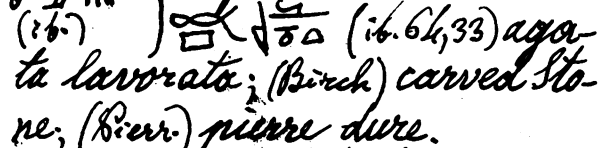 (ib.) (ib. 64,33) aga-
ta lavorata; (Birch) carved Sto-
ne; (Pierr.) pierre dure.